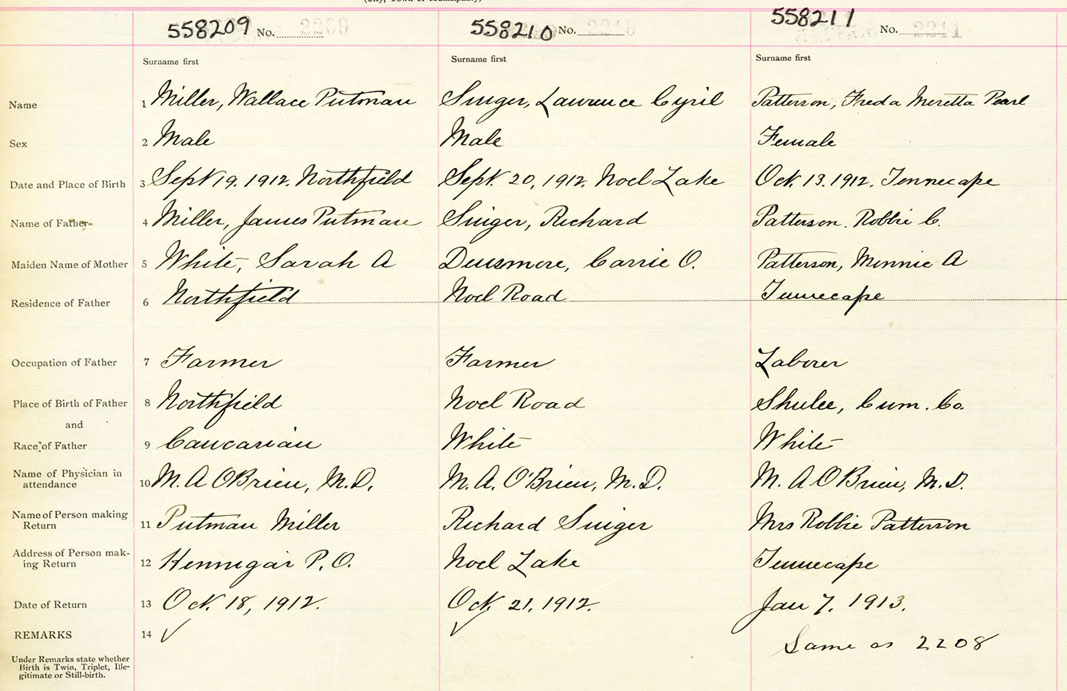 558209 No. 2209 558210 No. 2210 558211 No. 2211
Surname first Surname first Surname first
Name 1 Miller, Wallace Putman Singer, Lawrence Cyril Patterson, Freda Meretta Pearl
Sex 2 Male Male Female
Date and Place of Birth 3 Sept 19, 1912. Northfield Sept. 20, 1912. Noel Lake Oct. 13. 1912. Tennecape
Name of Father 4 Miller, James Putman Singer, Richard Patterson. Robbie C.
Maiden Name of Mother 5 White, Sarah A Densmore, Carrie O. Patterson, Minnie A
Residence of Father 6 Northfield Noel Road Tennecape
Occupation of Father 7 Farmer Farmer Laborer
Place of Birth of Father 8 Northfield Noel Road Shulee, Cum. Co.
and
Race of Father 9 Caucasian White White
Name of Physician in
attendance 10 M. A O'Brien, M.D. M. A. O'Brien, M.D. M. A O'Brien, M.D.
Name of Person making
Return 11 Putman Miller Richard Singer Mrs Robbie Patterson
Address of Person mak-
ing Return 12 Hennigar P. O. Noel Lake Tennecape
Date of Return 13 Oct. 18, 1912. Oct. 21, 1912. Jan 7. 1913.
REMARKS 14 ✓ ✓ Same as 2208
Under Remarks state whether
Birth is Twin, Triplet, Ille-
gitimate or Still-birth.